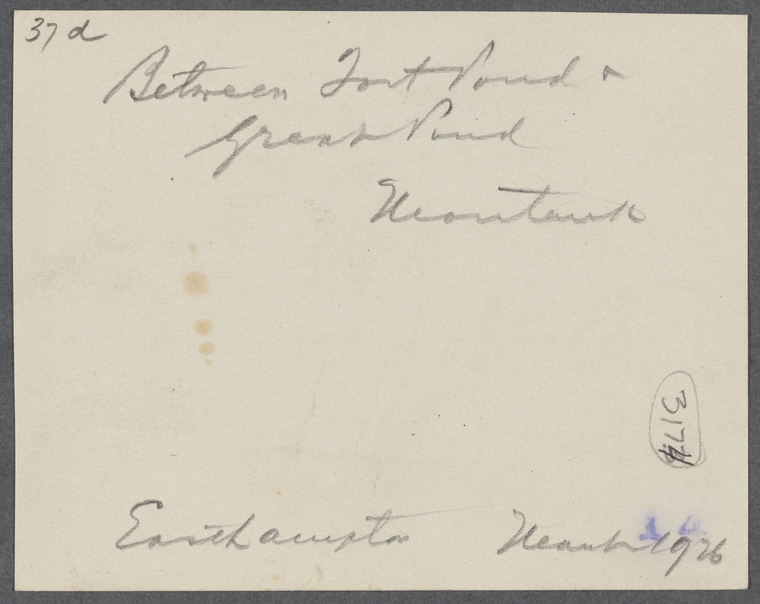 37 d
Between Fort Pond &
Great Pond
Montauk
3174
Easthampton 1926